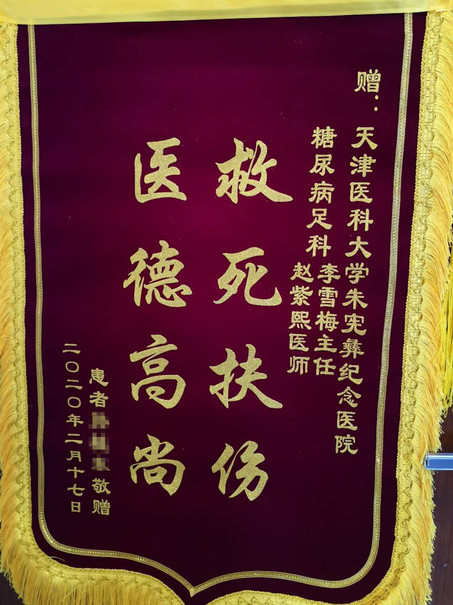 赠：天津医科大学朱宪彝纪念医院
糖尿病足科李雪梅主任
赵紫熙医师
救死扶伤
医德高尚
患者敬赠
二〇二〇年二月十七日